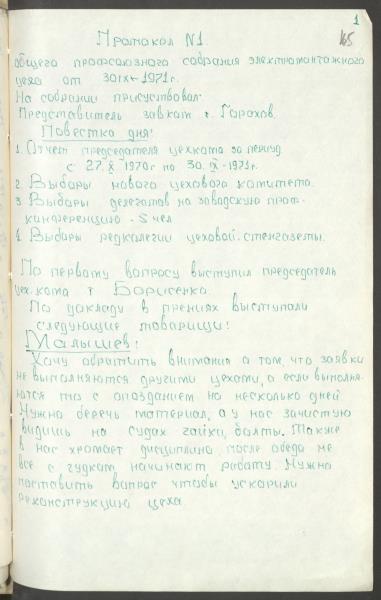 1
165
Протокол N1.
общего профсоюзного собрания электромонтажного
цеха от 30 IX - 1971 г.
На собрании присуствовал.
Представитель завком т. Горохов.
Повестка дня:
1. Отчет председателя цехкома за период
с 27. X 1970г по 30. IX - 1971г.
2. Выборы нового цехового комитета.
3 Выборы делегатов на заводскую проф-
конференцию - 5 чел
4. Выборы редколегии цеховой стенгазеты.
По первому вопросу выступил председатель
цехкома т Борисенко
По докладу в прениях выступали
следующие товарищи:
Малышев:
Хочу обратить внимания о том, что заявки
не выполняются другими цехами, а если выполня-
ются то с опозданием на несколько дней
Нужно беречь материал, а у нас зачистую
видишь на судах гайки, болты. Также
в нас хромает дисциплина, после обеда не
все с гудком начинают работу. Нужно
поставить вопрос чтобы ускорили
реконструкцию цеха